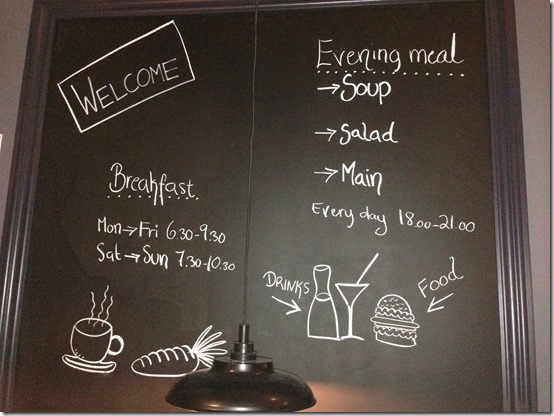 WELCOME
Breakfast
Mon→Fri 6.30-9.30
Sat→Sun 7.30-10.30
Evening meal
→Soup
→Salad
→Main
Every day 18.00-21.00
DRINKS
Food